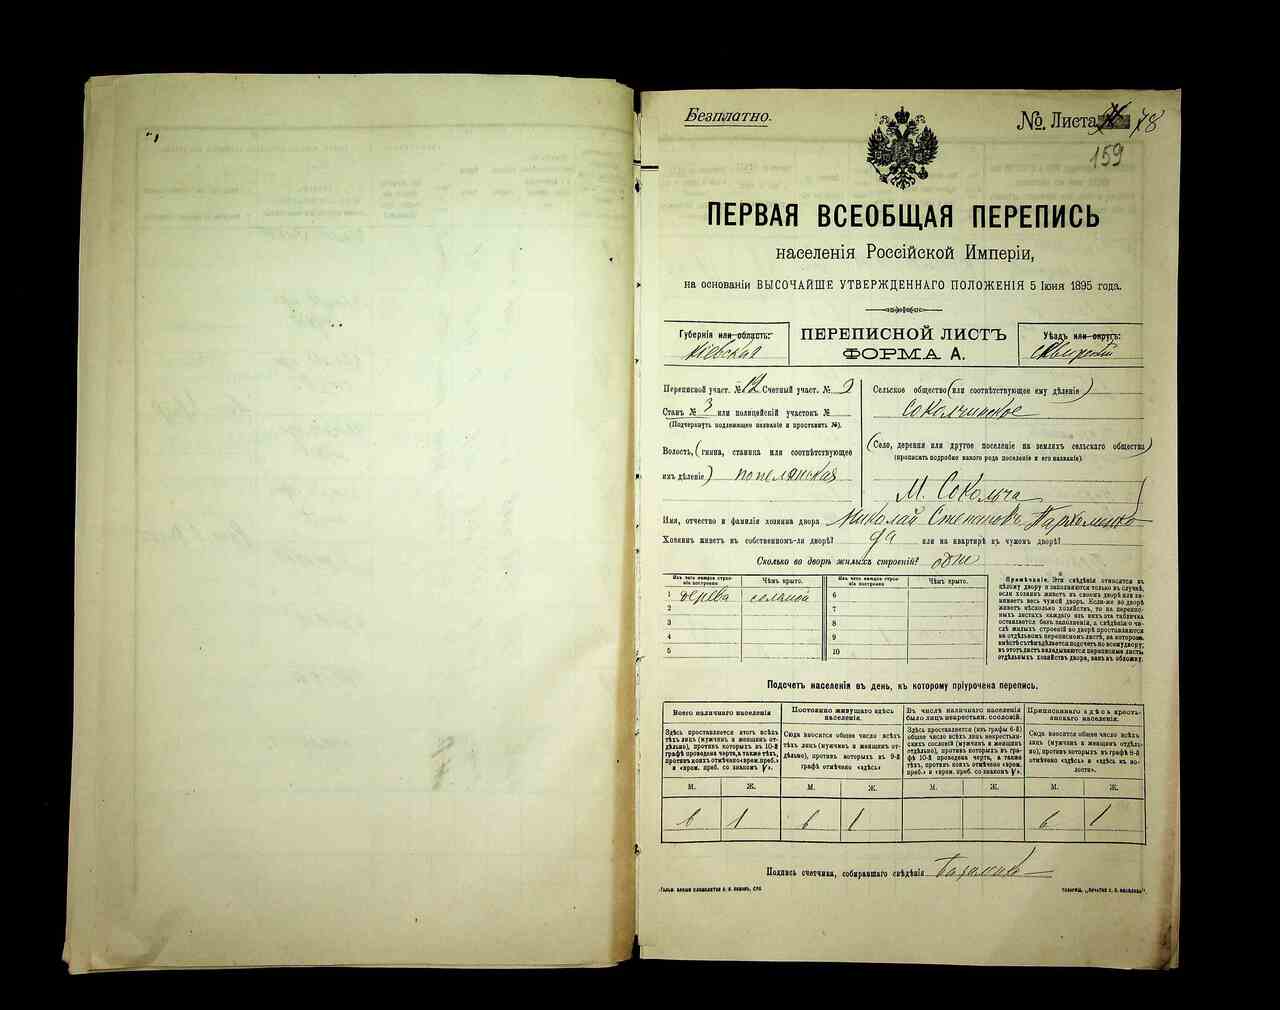 Безплатно.
№. Листа 78
159
ПЕРВАЯ ВСЕОБЩАЯ ПЕРЕПИСЬ
населенія Россійской Имперіи,
на основаніи ВЫСОЧАЙШЕ УТВЕРЖДЕННАГО ПОЛОЖЕНІЯ 5 Іюня 1895 года.
Губернія или область:
Кіевская
ПЕРЕПИСНОЙ ЛИСТЪ
ФОРМА А.
Уѣздъ или округъ:
Сквирскій
Переписной участ. № 12 Счетный участ. № 2
Станъ № 3 или полицейскій участокъ №
(Подчеркнуть подлежащее названіе и проставить №).
Волость, (гмина, станица или соотвѣтствующее
имъ дѣленіе) попелянская
Сельское общество (или соотвѣтствующее ему дѣленіе)
Соколчинское
(Село, деревня или другое поселеніе на земляхъ сельскаго общества)
(прописать подробно какого рода поселеніе и его названіе).
М. Соколча
Имя, отчество и фамилія хозяина двора Николай Степановъ Пархоменко
Хозяинъ живетъ въ собственномъ-ли дворѣ? да или на квартирѣ въ чужомъ дворѣ?
Сколько во дворѣ жилыхъ строеній? одно
Изъ чего каждое строеніе построено
Чѣмъ крыто.
Изъ чего каждое строеніе построено
Чѣмъ крыто.
1 дерева соломой 6
2 7
3 8
4 9
5 10
Примѣчаніе. Эти свѣдѣнія относятся къ
цѣлому двору и заполняются только въ случаѣ,
если хозяинъ живетъ въ своемъ дворѣ или занимаетъ
весь чужой дворъ. Если-же во дворѣ
живетъ нѣсколько хозяйствъ, то на переписныхъ
листахъ каждаго изъ нихъ эта табличка
оставляется безъ заполненія, а свѣдѣнія о числѣ
жилыхъ строеній во дворѣ проставляются
на отдѣльномъ переписномъ листѣ, на которомъ
вмѣстѣ съ тѣмъ дѣлается подсчетъ по всему двору;
въ этотъ листъ вкладываются переписные листы
отдѣльныхъ хозяйствъ двора, какъ въ обложку.
Подсчетъ населенія въ день, къ которому пріурочена перепись.
Всего наличнаго населенія
Здѣсь проставляется итогъ всѣхъ
тѣхъ лицъ (мужчинъ и женщинъ отдѣльно),
противъ которыхъ въ 10-й
графѣ проведена черта, а также тѣхъ,
противъ коихъ отмѣчено «врем. преб.»
и «врем. преб. со знакомъ V».
Постоянно живущаго здѣсь
населенія.
Сюда вносится общее число всѣхъ
тѣхъ лицъ (мужчинъ и женщинъ отдѣльно),
противъ которыхъ въ 9-й
графѣ отмѣчено «здѣсь»
Въ числѣ наличнаго населенія
было лицъ некрестьян. сословій.
Здѣсь проставляется (изъ графы 6-й)
общее число всѣхъ лицъ некрестьянскихъ
сословій (мужчинъ и женщинъ
отдѣльно), противъ которыхъ въ графѣ
10-й проведена черта, а также
тѣхъ, противъ коихъ отмѣчено «врем.
преб.» и «врем. преб. со знакомъ V».
Приписаннаго здѣсь крестьянскаго
населенія.
Сюда вносится общее число всѣхъ
лицъ (мужчинъ и женщинъ отдѣльно),
противъ которыхъ въ графѣ 8-й
отмѣчено «здѣсь» и «здѣсь въ волости».
М. Ж. М. Ж. М. Ж. М. Ж.
6 1 6 1 6 1
Подпись счетчика, собиравшаго свѣдѣнія